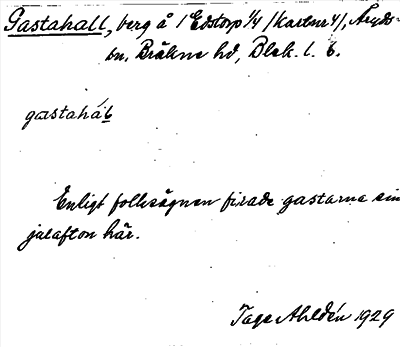 Gastahall, berg å 1 Edstorp 1/4 /kartnr 4/, Åryds-
sn, Bräkne hd, Blek. l. b.
gastahá
Enligt folksägnen firade gastarna sin
julafton här.
Tage Ahldén 1929